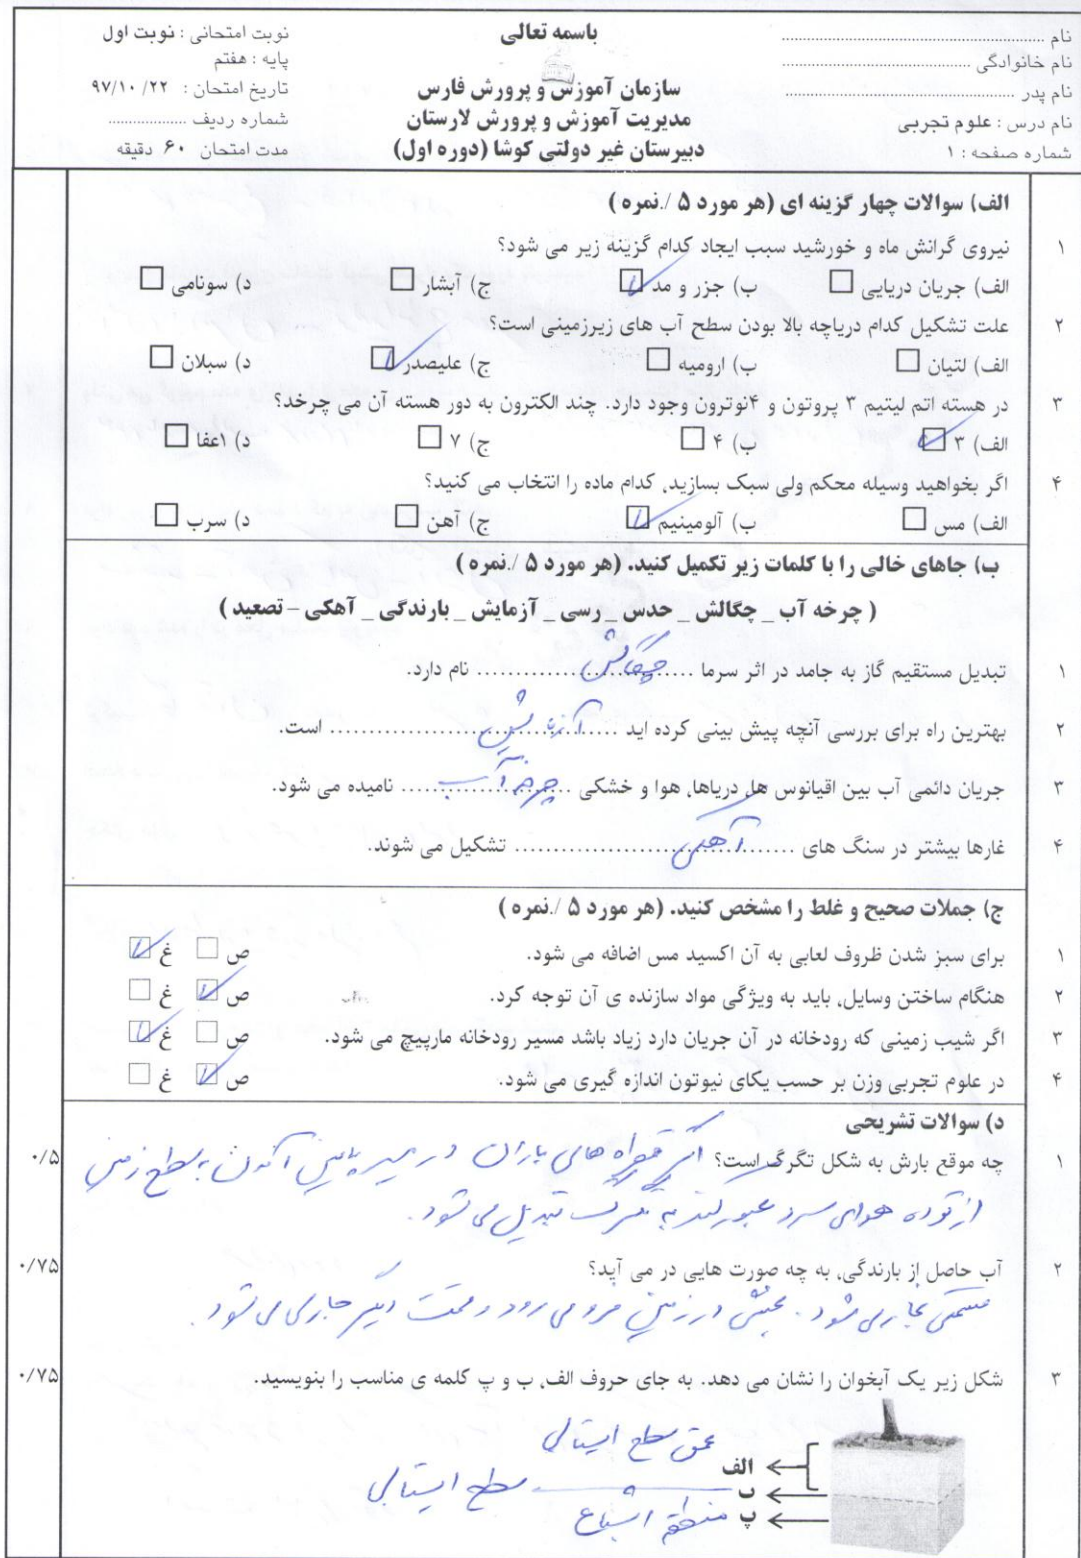 باسمه تعالی
نام
نام خانوادگی
نام پدر
نام درس : علوم تجربی
شماره صفحه : ۱
سازمان آموزش و پرورش فارس
مدیریت آموزش و پرورش لارستان
دبیرستان غیر دولتی کوشا (دوره اول)
نوبت امتحانی : نوبت اول
پایه : هفتم
تاریخ امتحان : ۹۷/۱۰/۲۲
شماره ردیف
مدت امتحان ۶۰ دقیقه
الف) سوالات چهار گزینه ای (هر مورد ۵ /.نمره )
۱ نیروی گرانش ماه و خورشید سبب ایجاد کدام گزینه زیر می شود؟
الف) جریان دریایی ب) جزر و مد ج) آبشار د) سونامی
۲ علت تشکیل کدام دریاچه بالا بودن سطح آب های زیرزمینی است؟
الف) لتیان ب) ارومیه ج) علیصدر د) سبلان
۳ در هسته اتم لیتیم ۳ پروتون و ۴نوترون وجود دارد. چند الکترون به دور هسته آن می چرخد؟
الف) ۳ ب) ۴ ج) ۷ د) ۱عفا
۴ اگر بخواهید وسیله محکم ولی سبک بسازید, کدام ماده را انتخاب می کنید؟
الف) مس ب) آلومینیم ج) آهن د) سرب
ب) جاهای خالی را با کلمات زیر تکمیل کنید. (هر مورد ۵ /.نمره )
( چرخه آب _ چگالش _ حدس _ رسی _ آزمایش _ بارندگی _ آهکی – تصعید )
۱ تبدیل مستقیم گاز به جامد در اثر سرما ..... چگالش ..... نام دارد.
۲ بهترین راه برای بررسی آنچه پیش بینی کرده اید ..... آزمایش ..... است.
۳ جریان دائمی آب بین اقیانوس ها, دریاها, هوا و خشکی ..... چرخه آب ..... نامیده می شود.
۴ غارها بیشتر در سنگ های ..... آهکی ..... تشکیل می شوند.
ج) جملات صحیح و غلط را مشخص کنید. (هر مورد ۵ /.نمره )
۱ برای سبز شدن ظروف لعابی به آن اکسید مس اضافه می شود. ص غ
۲ هنگام ساختن وسایل, باید به ویژگی مواد سازنده ی آن توجه کرد. ص غ
۳ اگر شیب زمینی که رودخانه در آن جریان دارد زیاد باشد مسیر رودخانه مارپیچ می شود. ص غ
۴ در علوم تجربی وزن بر حسب یکای نیوتون اندازه گیری می شود. ص غ
د) سوالات تشریحی
۱ چه موقع بارش به شکل تگرگ است؟ اگر قطره های باران در مسیر پایین آمدن به سطح زمین ۰/۵
از توده هوای سرد عبور کند به تگرگ تبدیل می شود.
۲ آب حاصل از بارندگی, به چه صورت هایی در می آید؟ ۰/۷۵
می شود. بخشی در زمین فرو می رود و قسمت دیگر جاری می شود.
۳ شکل زیر یک آبخوان را نشان می دهد. به جای حروف الف, ب و پ کلمه ی مناسب را بنویسید. ۰/۷۵
الف عمق سطح ایستابی
ب سطح ایستابی
پ منطقه اشباع